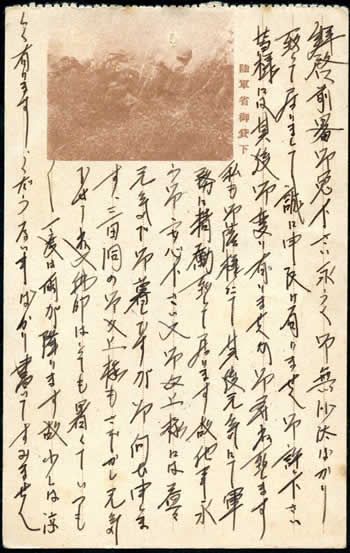 拝啓前畧御免下さい永らく御無沙汰ばかり
致して居りまして誠に申訳け有りません御許下さい
皆様には其後御変り有りませんか御尋ね致します
私も御蔭様にて其後元気にて軍
務に精働致して居ります故他事乍
御安心下さい又御父上様には益々
元気で御暮しですか御伺ひ申しま
す、三田の御父上様もさぞかし元気
又当地はとても暑くていつも
一度は雨が降ります故少しは涼
しく有りますくだらない事ばかり書いてすみません
陸軍省御貸下